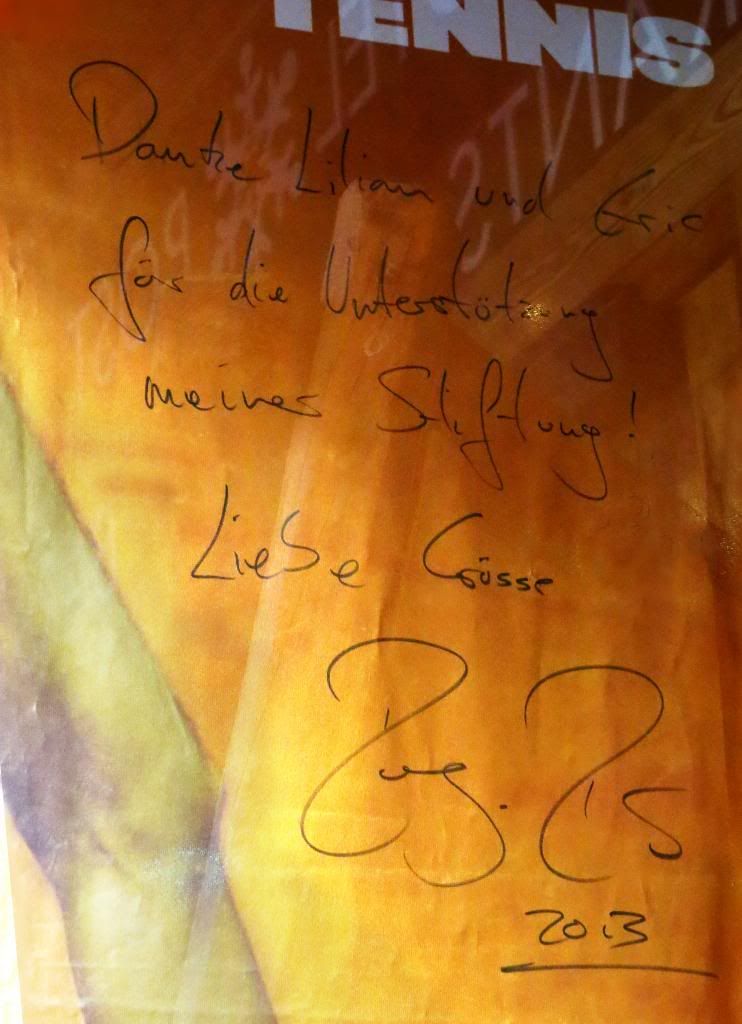 TENNIS
Danke Lilian und Eric
für die Unterstützung
meiner Stiftung!
Liebe Grüsse
2013